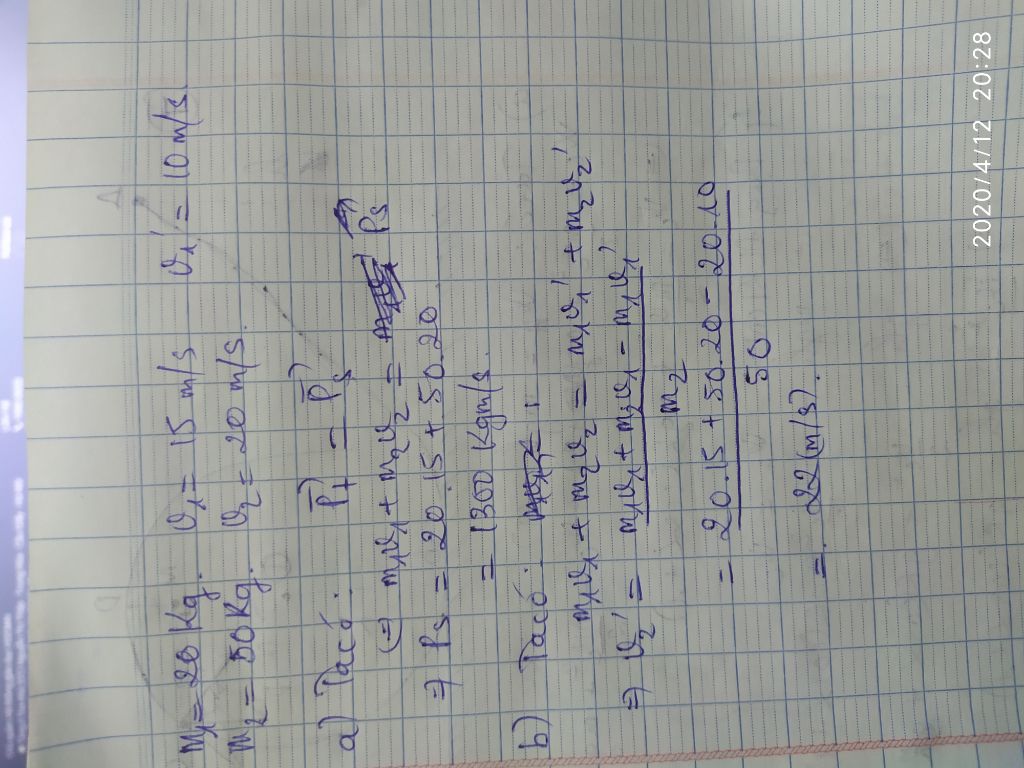 m₁ = 20 Kg. v₁ = 15 m/s v₁' = 10 m/s.
m₂ = 50 Kg. v₂ = 20 m/s.
a) Ta có: P⃗t = P⃗s
(=) m₁v₁ + m₂v₂ = Ps
=) Ps = 20.15 + 50.20
= 1300 Kgm/s.
b) Ta có:
m₁v₁ + m₂v₂ = m₁v₁' + m₂v₂'
=) v₂' = m₁v₁ + m₂v₁ - m₁v₁'
m₂
= 20.15 + 50.20 - 20.10
50
= 22 (m/s).
2020/4/12 20:28